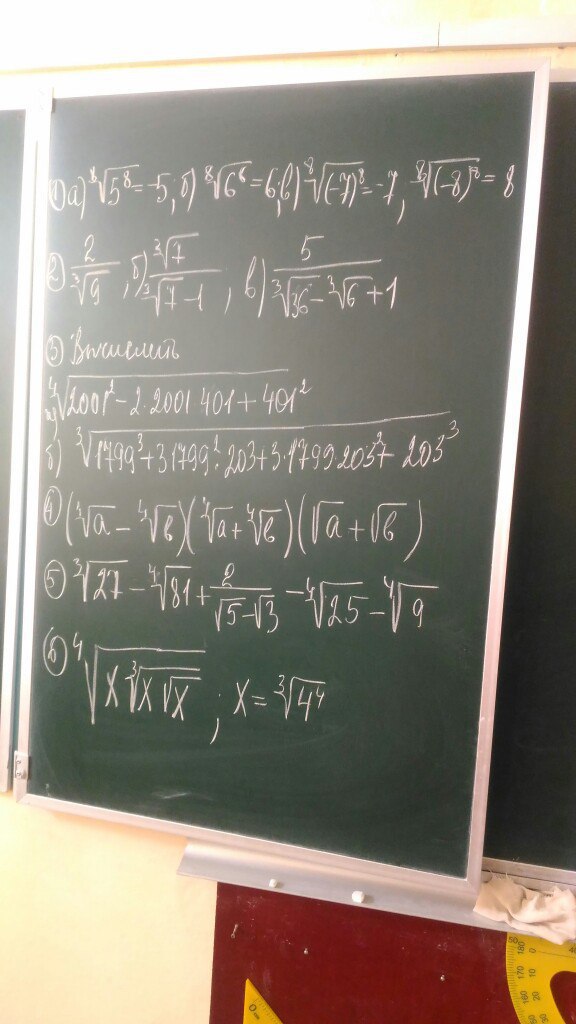 ① а) ⁸√5⁸ = -5, б) ⁸√6⁶ = 6, в) ⁸√(-7)⁸ = -7, ⁸√(-8)⁸ = 8
② 2/∛9, б) ∛7/(∛7 - 1), в) 5/(∛36 - ∛6 + 1)
③ Вычислить
а) ⁴√2001² - 2·2001·401 + 401²
б) ∛1799³ + 3·1799²·203 + 3·1799·203² + 203³
④ (⁴√a - ⁴√b)(⁴√a + ⁴√b)(√a + √b)
⑤ ∛27 - ⁴√81 + 2/(√5 - √3) - ⁴√25 - ⁴√9
⑥ ⁴√x∛x√x ; x = ∛4⁴
50
40
180
170
160
0
10
20
0